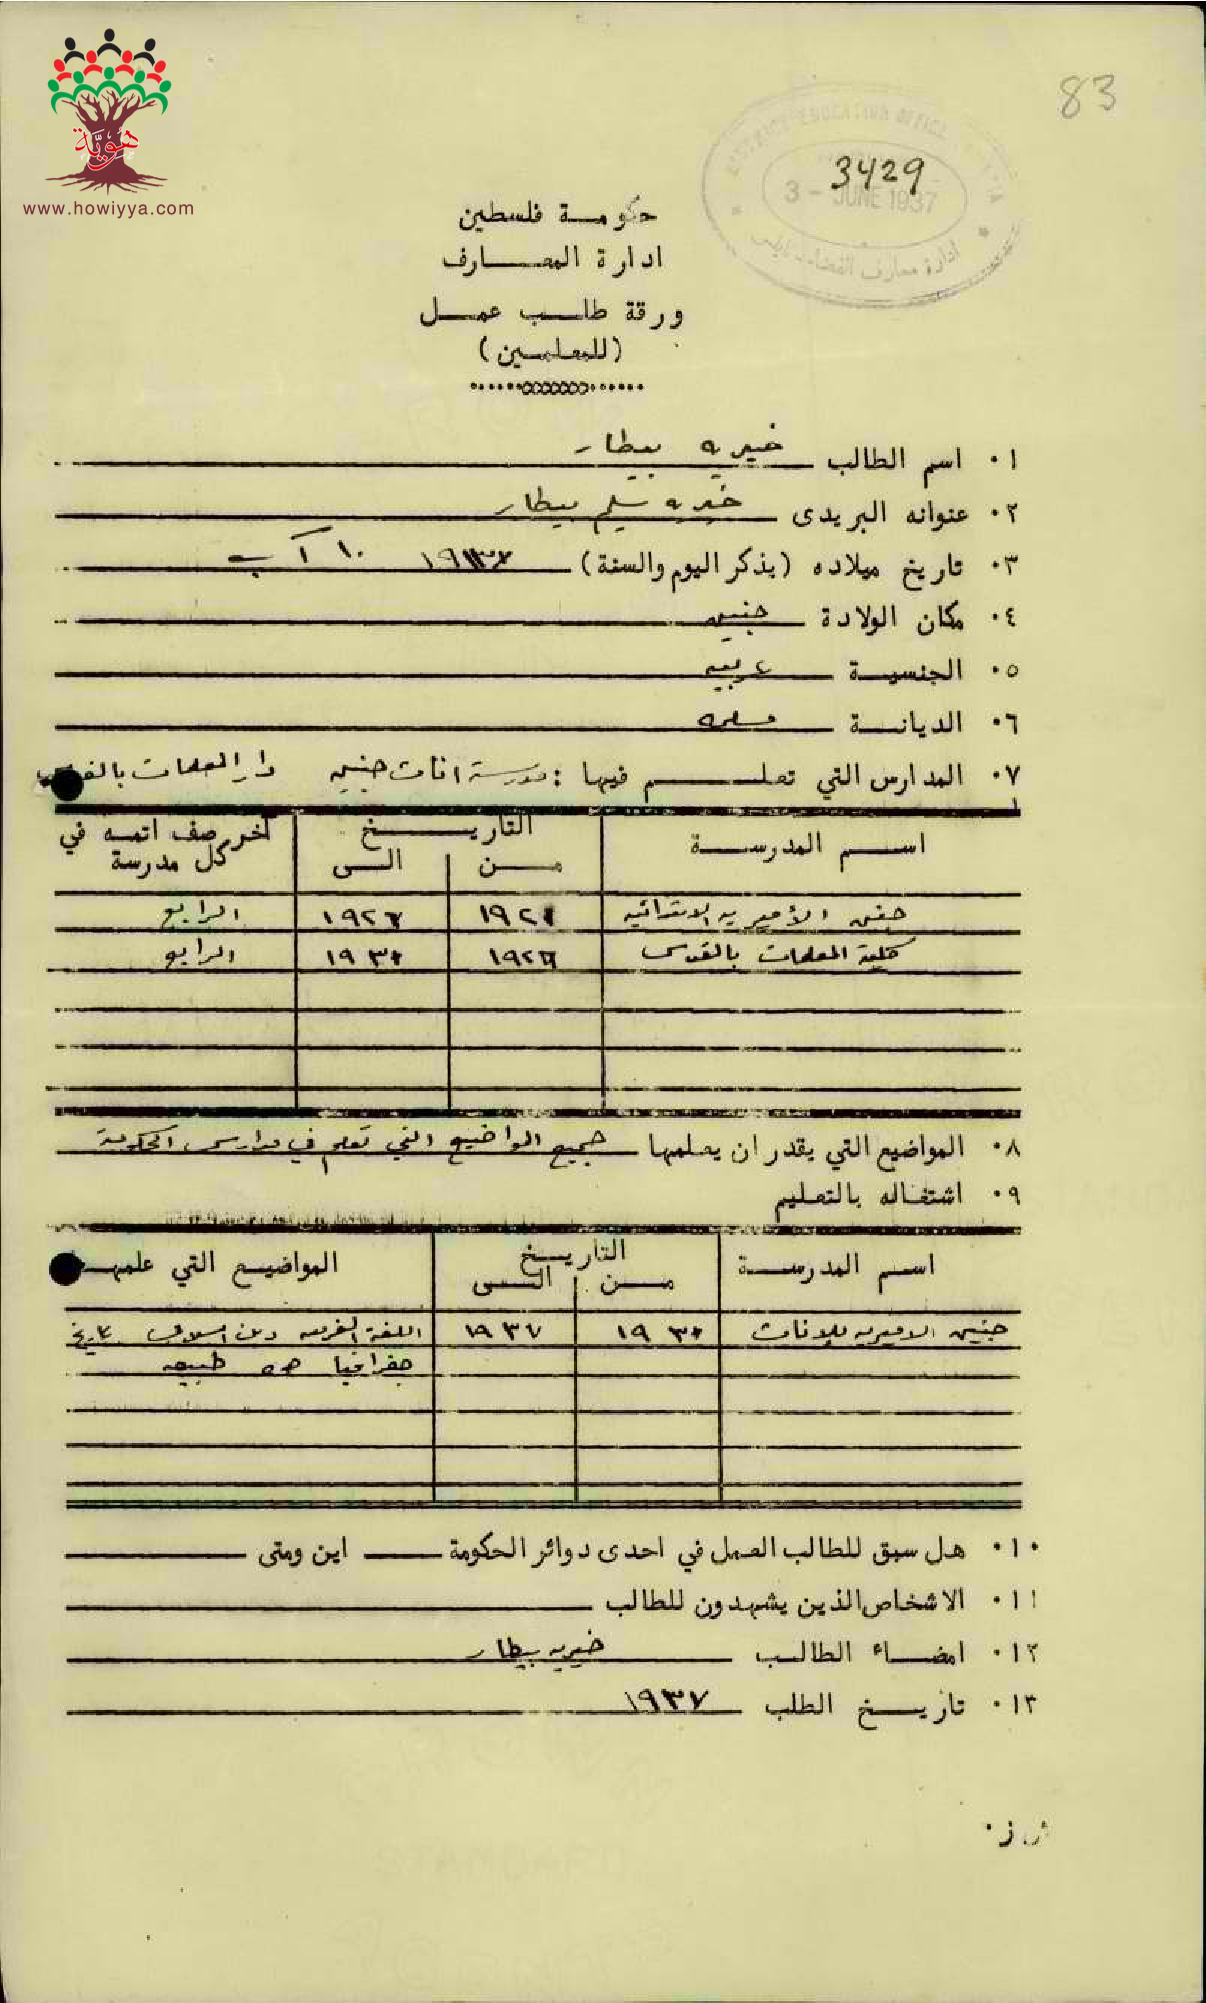 هوية
www.howiyya.com
83
DISTRICT EDUCATION OFFICE
3429
3 - JUNE 1937
ادارة معارف القضاء نابلس
حكومة فلسطين
ادارة المعارف
ورقة طالب عمل
(للمعلمين)
١٠ اسم الطالب خيريه بيطار
٢٠ عنوانه البريدى خيريه سليم بيطار
٣٠ تاريخ ميلاده (يذكر اليوم والسنة) ١٠ آب
٤٠ مكان الولادة جنين
٥٠ الجنسية عربيه
٦٠ الديانة مسلمه
٧٠ المدارس التي تعلم فيها : مدرسة اناث جنين دار المعلمات بالقدس
اسم المدرسة التاريخ آخر صف اتمه في كل مدرسة
من الى
جنين الأميرية الابتدائيه ١٩٢١ ١٩٢٦ الرابع
كلية المعلمات بالقدس ١٩٢٦ ١٩٣٠ الرابع
٨٠ المواضيع التي يقدر ان يعلمها جميع المواضيع التي تعلم في مدارس الحكومة
٩٠ اشتغاله بالتعليم
اسم المدرسة التاريخ المواضيع التي علمها
من الى
جنين الاميريه للاناث ١٩٣٠ ١٩٣٧ اللغة العربيه دين اسلامي تاريخ
جغرافيا صحه طبيعه
١٠٠ هل سبق للطالب العمل في احدى دوائر الحكومة اين ومتى
١١٠ الاشخاص الذين يشهدون للطالب
١٢٠ امضاء الطالب خيريه بيطار
١٣٠ تاريخ الطلب ١٩٣٧
ش ز٠